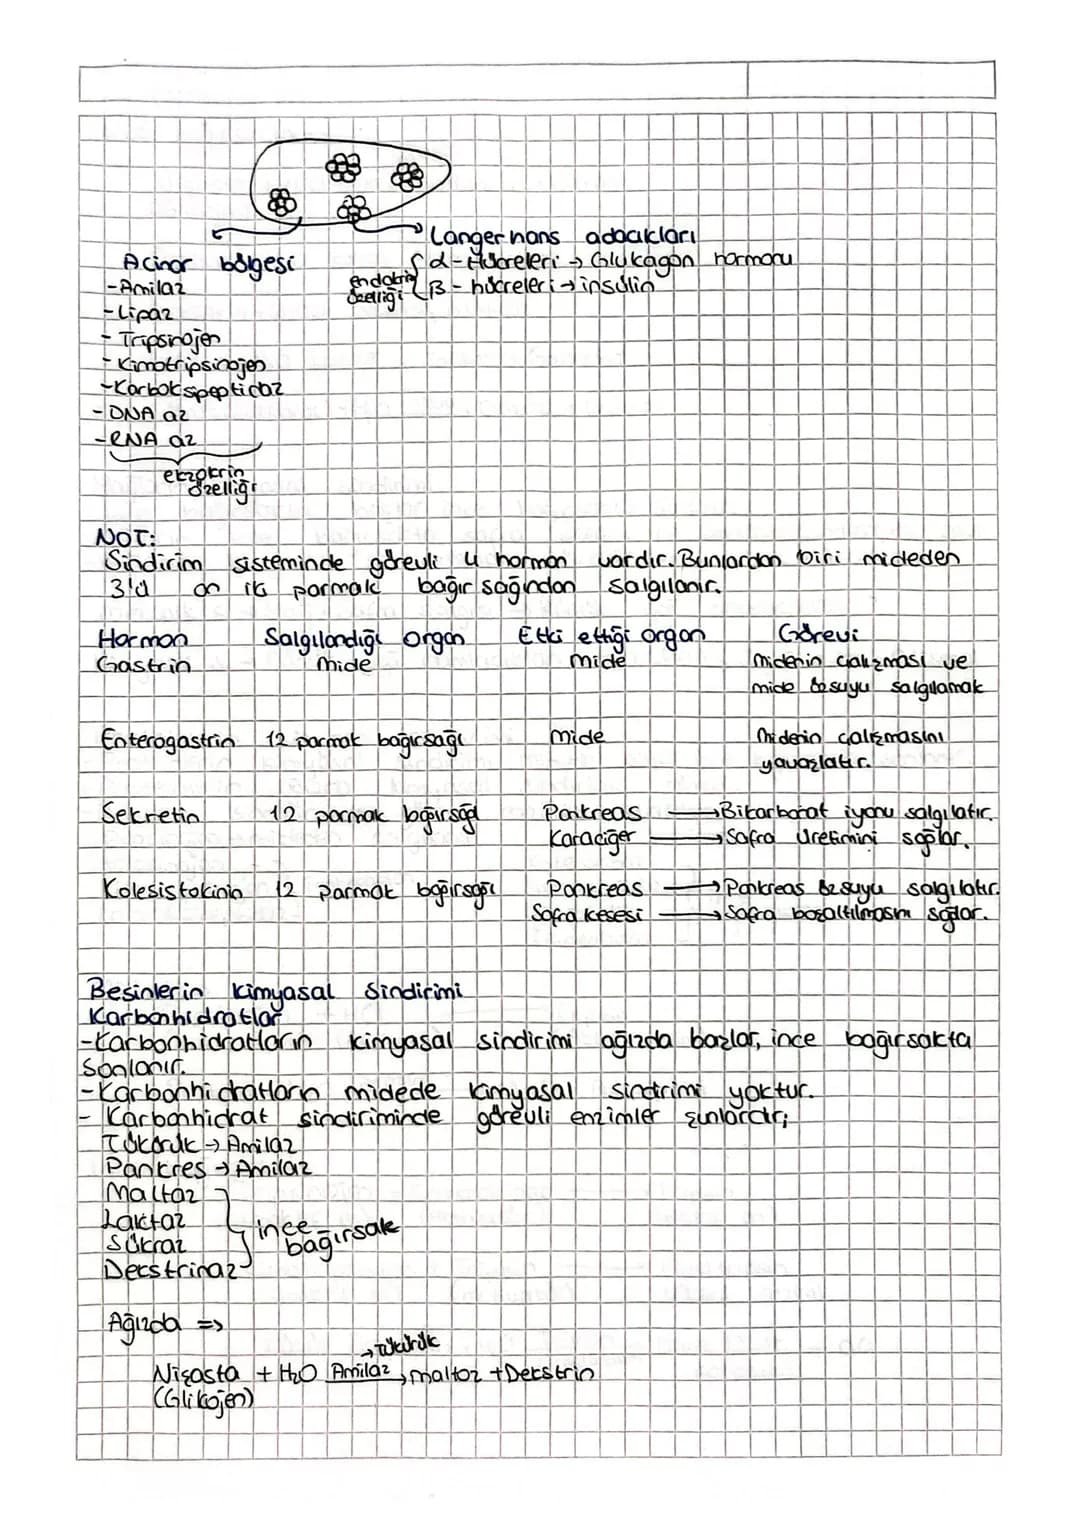 Langerhans adacıkları
Acinar bölgesi
α-Hücreleri → Glukagon hormonu
endokrin özelliği
β - hücreleri → insülin
-Amilaz
-Lipaz
- Tripsinojen
- Kimotripsinojen
-Karboksipeptidaz
-DNA az
-RNA az
ekzokrin özelliği
NOT:
Sindirim sisteminde görevli 4 hormon vardır. Bunlardan biri mideden
3'ü on iki parmak bağırsağından salgılanır.
Hormon Salgılandığı organ Etki ettiği organ Görevi
Gastrin mide mide midenin çalışması ve
mide özsuyu salgılamak
Enterogastrin 12 parmak bağırsağı mide Midenin çalışmasını
yavaşlatır.
Sekretin 12 parmak bağırsağı Pankreas → Bikarbonat iyonu salgılatır.
Karaciğer → Safra üretimini sağlar.
Kolesistokinin 12 parmak bağırsağı Pankreas → Pankreas özsuyu salgılatır.
Safra kesesi → Safra boşaltılmasını sağlar.
Besinlerin kimyasal Sindirimi
Karbonhidratlar
-Karbonhidratların kimyasal sindirimi ağızda başlar, ince bağırsakta
Sonlanır.
-Karbonhidratların midede kimyasal sindirimi yoktur.
- Karbonhidrat sindiriminde görevli enzimler şunlardır;
Tükürük → Amilaz
Pankres → Amilaz
Maltaz
Laktaz
Sükraz
ince bağırsak
Dekstrinaz
Ağızda =>
→ Tükürük
Nişasta + H₂O Amilaz → maltoz + Dekstrin
(Glikojen)